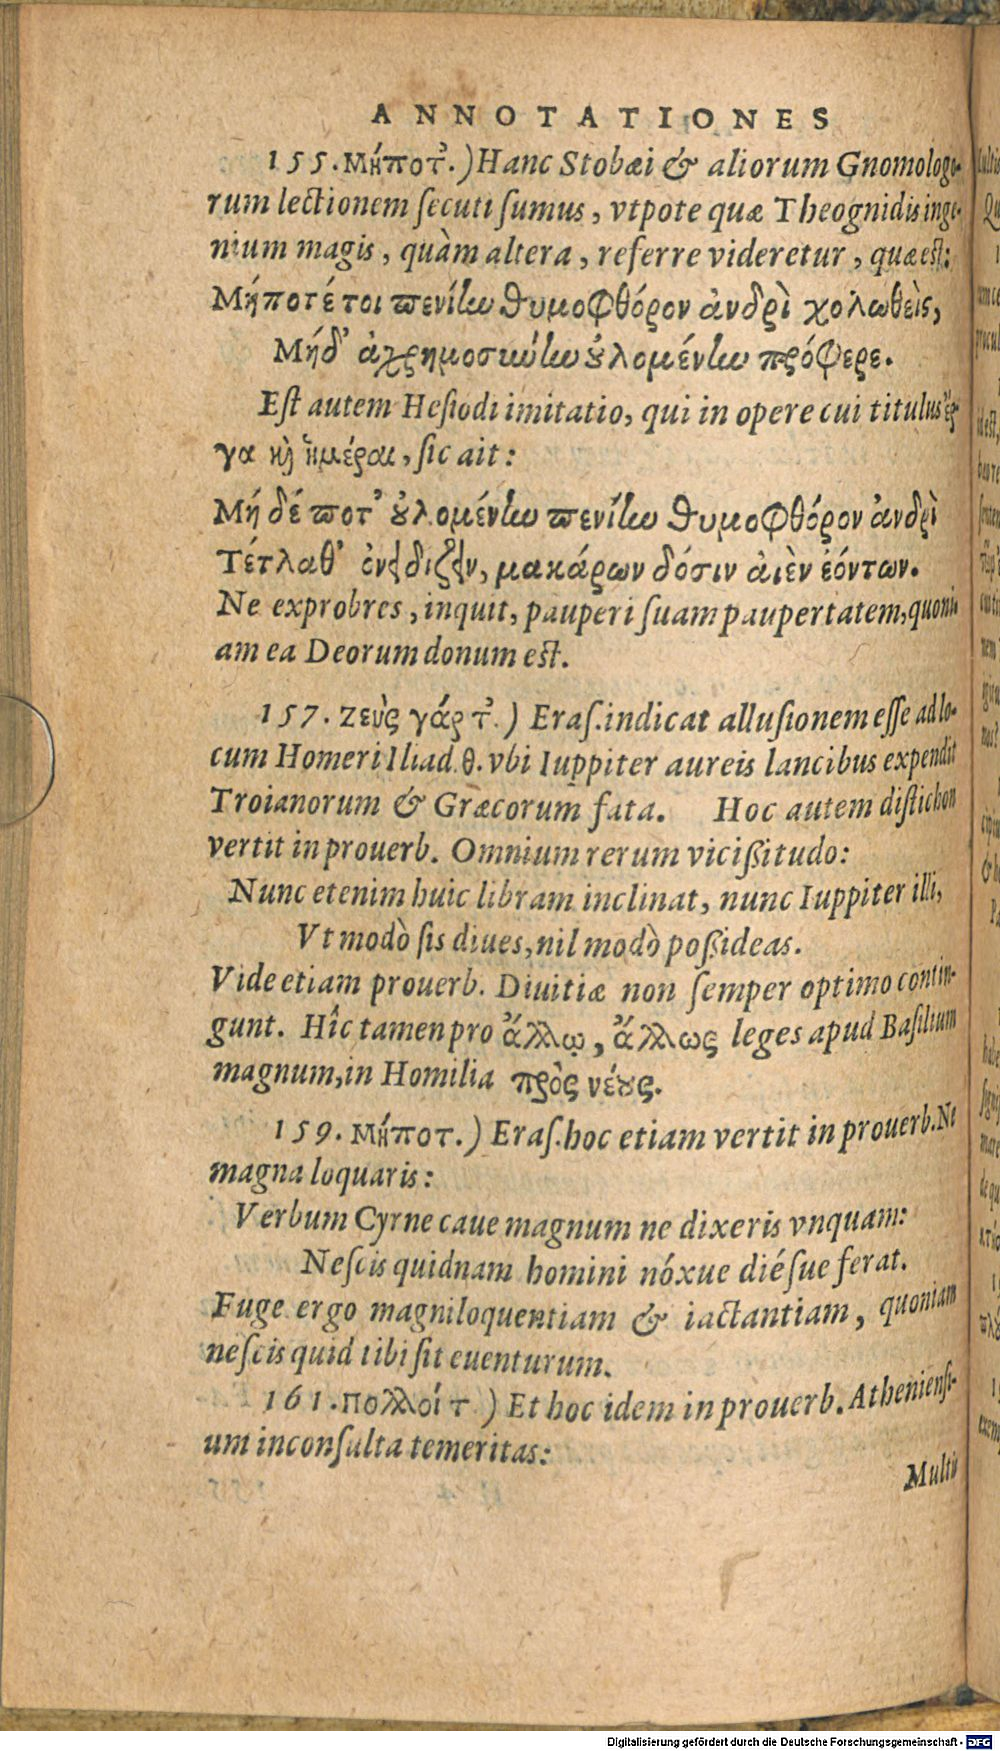 ANNOTATIONES
155. Μήποτ᾽.) Hanc Stobæi & aliorum Gnomologo-
rum lectionem ſecuti ſumus, vtpote quæ Theognidis inge-
nium magis, quàm altera, referre videretur, quæ est:
Μήποτέ τοι πενίην θυμοφθόρον ἀνδρὶ χολωθεὶς,
Μήδ᾽ ἀχρημοσύνην οὐλομένην πρόφερε.
Est autem Hesiodi imitatio, qui in opere cui titulus ἔρ-
γα καὶ ἡμέραι, ſic ait:
Μή δέ ποτ᾽ οὐλομένην πενίην θυμοφθόρον ἀνδρὶ
Τέτλαθ᾽ ὀνειδίζειν, μακάρων δόσιν αἰὲν ἐόντων.
Ne exprobres, inquit, pauperi ſuam paupertatem, quoni-
am ea Deorum donum est.
157. Ζεὺς γάρ τ᾽.) Eraſ. indicat alluſionem eſſe ad lo-
cum Homeri Iliad. θ. vbi Iuppiter aureis lancibus expendit
Troianorum & Græcorum fata. Hoc autem diſtichon
vertit in prouerb. Omnium rerum vicißitudo:
Nunc etenim huic libram inclinat, nunc Iuppiter illi,
Vt modò ſis diues, nil modò poßideas.
Vide etiam prouerb. Diuitiæ non ſemper optimo contin-
gunt. Hîc tamen pro ἄλλῳ, ἄλλως leges apud Baſilium
magnum, in Homilia πρὸς νέους.
159. Μήποτ.) Eraſ. hoc etiam vertit in prouerb. Ne
magna loquaris:
Verbum Cyrne caue magnum ne dixeris vnquam:
Neſcis quidnam homini nóxue diéſue ferat.
Fuge ergo magniloquentiam & iactantiam, quoniam
neſcis quid tibi ſit euenturum.
161. Πολλοί τ.) Et hoc idem in prouerb. Athenienſi-
um inconſulta temeritas:
Multis
Digitalisierung gefördert durch die Deutsche Forschungsgemeinschaft - DFG